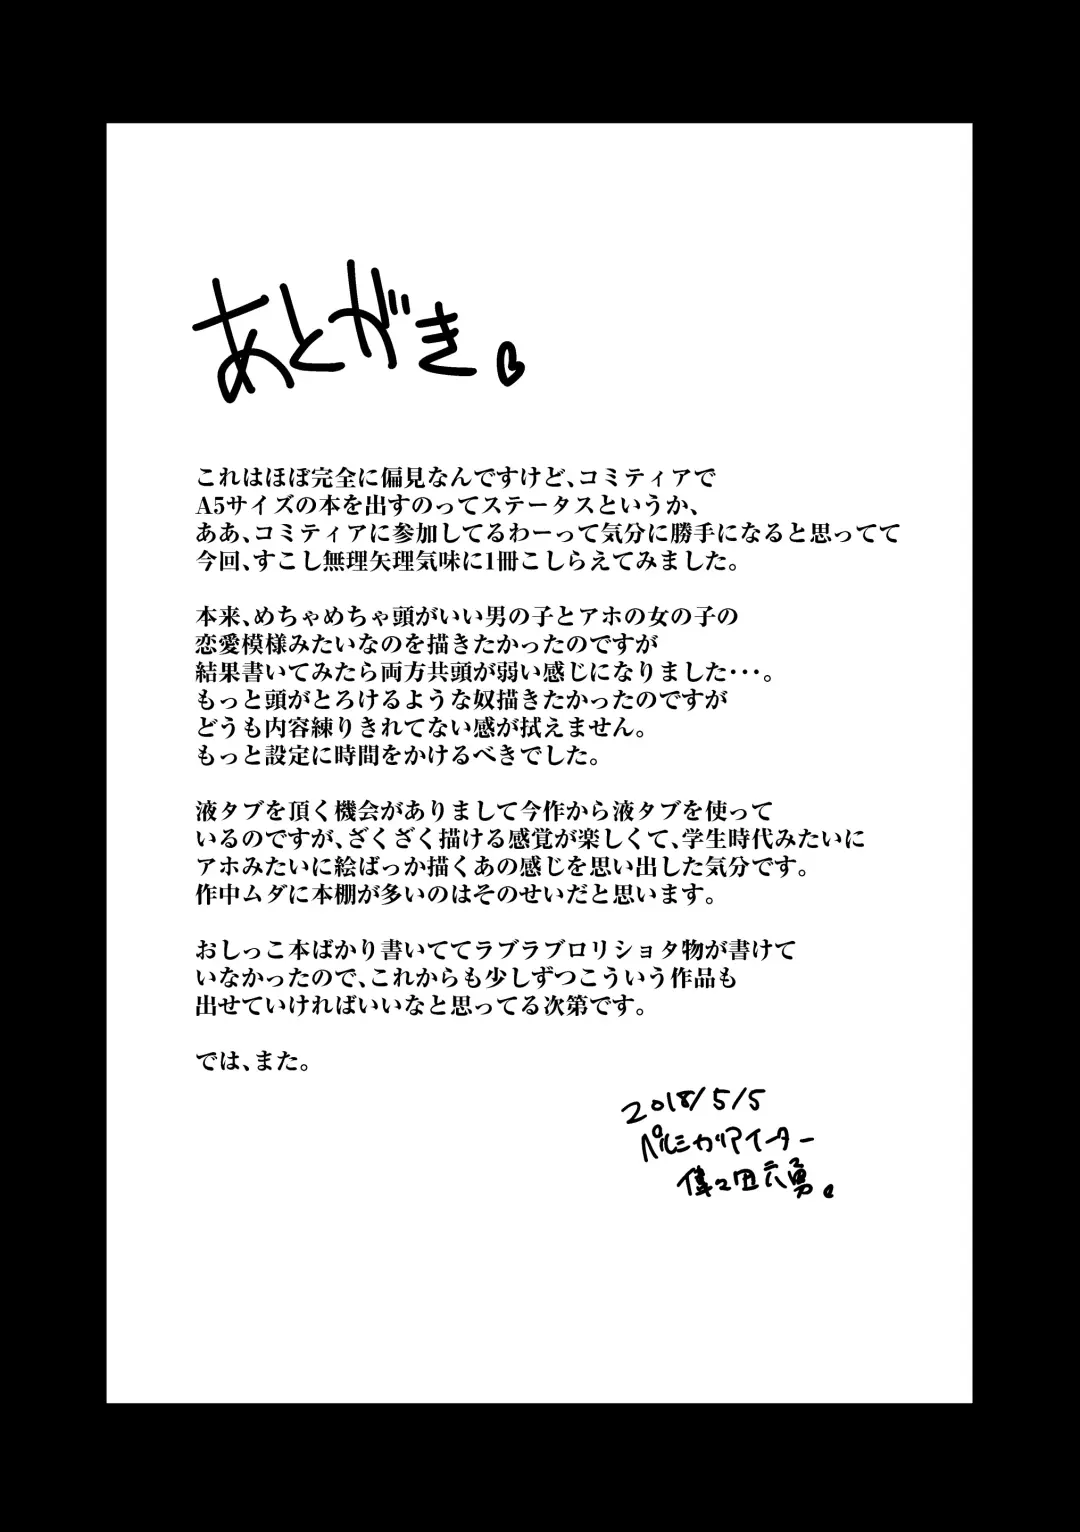 あとがき。
これはほぼ完全に偏見なんですけど、コミティアで
A5サイズの本を出すのってステータスというか、
ああ、コミティアに参加してるわーって気分に勝手になると思ってて
今回、すこし無理矢理気味に1冊こしらえてみました。
本来、めちゃめちゃ頭がいい男の子とアホの女の子の
恋愛模様みたいなのを描きたかったのですが
結果書いてみたら両方共頭が弱い感じになりました・・・。
もっと頭がとろけるような奴描きたかったのですが
どうも内容練りきれてない感が拭えません。
もっと設定に時間をかけるべきでした。
液タブを頂く機会がありまして今作から液タブを使って
いるのですが、ざくざく描ける感覚が楽しくて、学生時代みたいに
アホみたいに絵ばっか描くあの感じを思い出した気分です。
作中ムダに本棚が多いのはそのせいだと思います。
おしっこ本ばかり書いててラブラブロリショタ物が書けて
いなかったので、これからも少しずつこういう作品も
出せていければいいなと思ってる次第です。
では、また。
2018/5/5
パルミカリアイーター